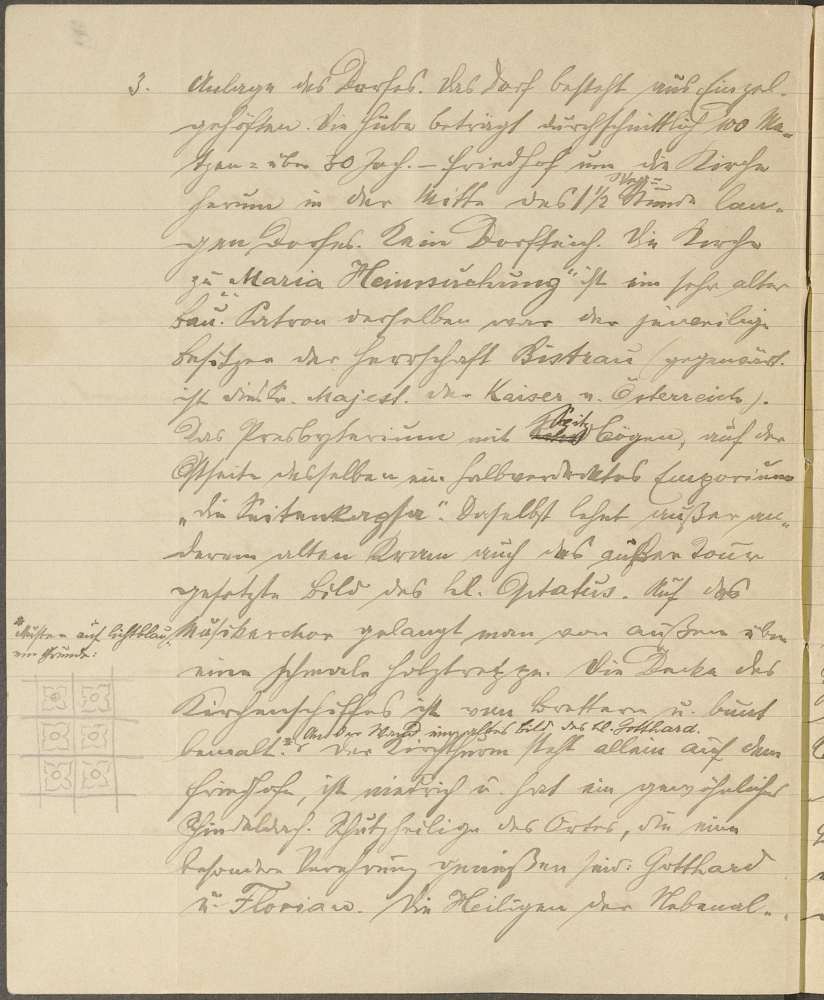 3. Anlage des Dorfes. Das Dorf besteht aus Einzel-
gehöften. Die Hube beträgt durchschnittlich 100 Me-
tzen = über 30 Joch. – Friedhof um die Kirche
herum in der Mitte des 1 1/2 Stunde lan-
gen Dorfes. Kein Dorfteich. Die Kirche
zu „Maria Heimsuchung" ist ein sehr alter
Bau. Patron derselben war der jeweilige
Besitzer der Herrschaft Bistrau (gegenwärt.
ist dies Sr. Majest. der Kaiser v. Österreich).
Das Presbyterium mit Spitzbögen, auf der
Ostseite desselben ein halbverdecktes Emporium
„die Seitenkapha". Daselbst lehnt außer an-
derem alten Kram auch das außer Tour
gesetzte Bild des hl. Ostatus. Auf das
Musikerchor gelangt man von außen über
eine schmale Holztreppe. Die Decke des
Kirchenschiffes ist von Brettern u. bunt
bemalt.* An der Wand ein altes Bild des hl. Gotthard.
Der Kirchthurm steht allein auf dem
Friedhofe, ist niedrich u. hat ein gewöhnliches
Schindeldach. Schutzheilige des Ortes, die eine
besondere Verehrung genießen sind: Gotthard
u. Florian. Die Heiligen der Nebenal-
* Muster auf lichtblau-
em Grunde: